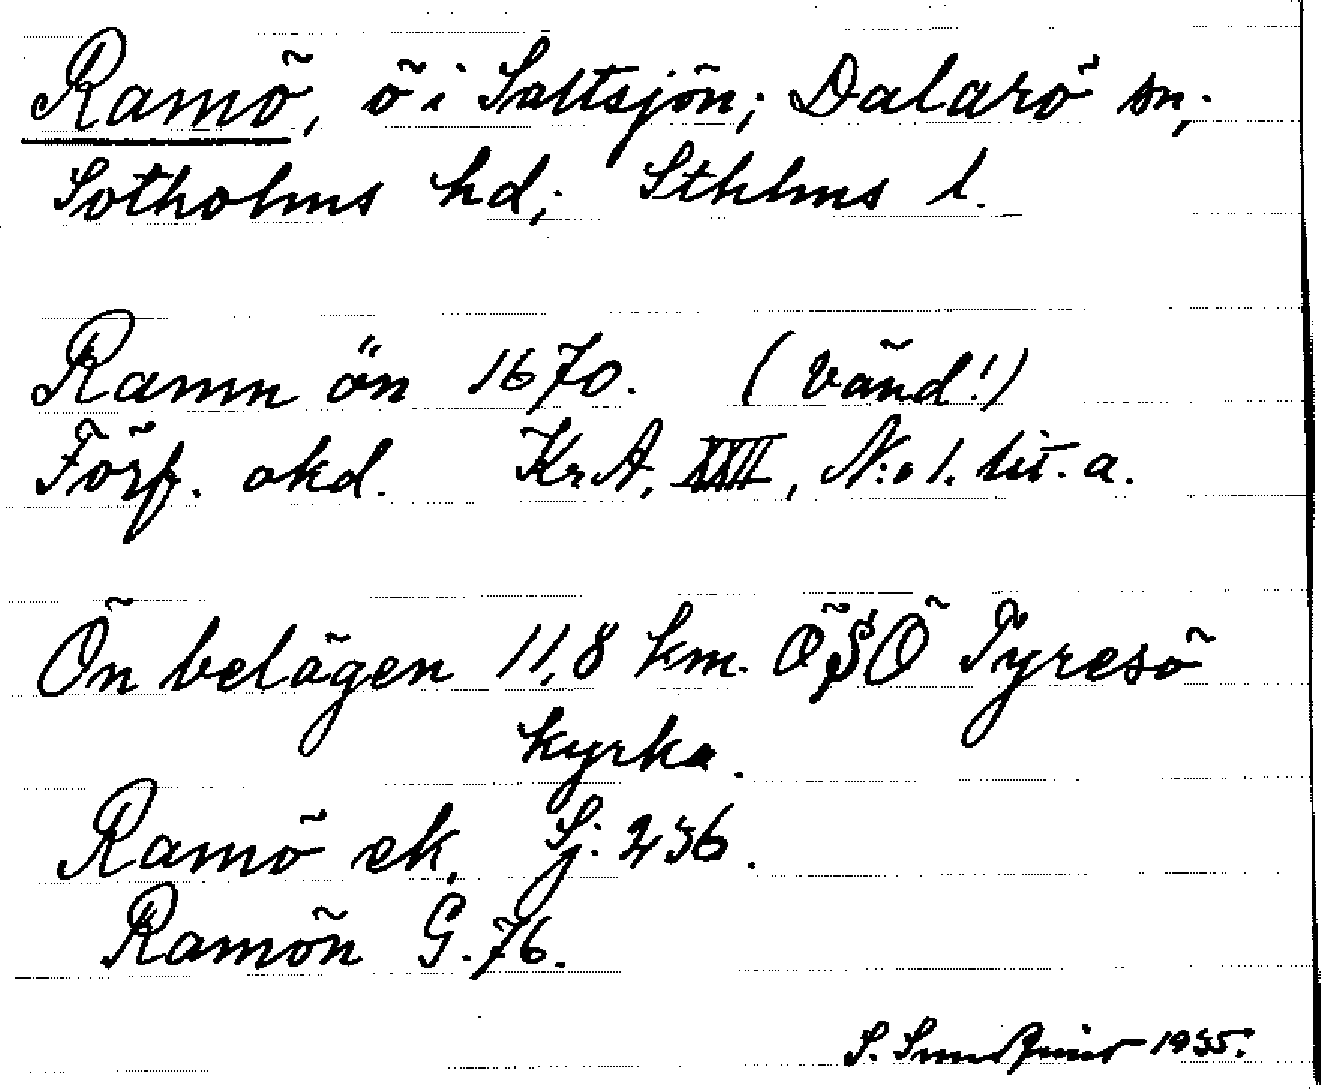 Ramö, ö i Saltsjön; Dalarö sn;
Sotholms hd; Sthlms l.
Ramn ön 1670. (Vänd!)
Förf. okd. Kr.A, XXII, N:o 1. lit. a.
Ön belägen 11,8 km. ÖSÖ Tyresö
kyrka.
Ramö ek. Sj. 236.
Ramön G. 76.
S. 1935.